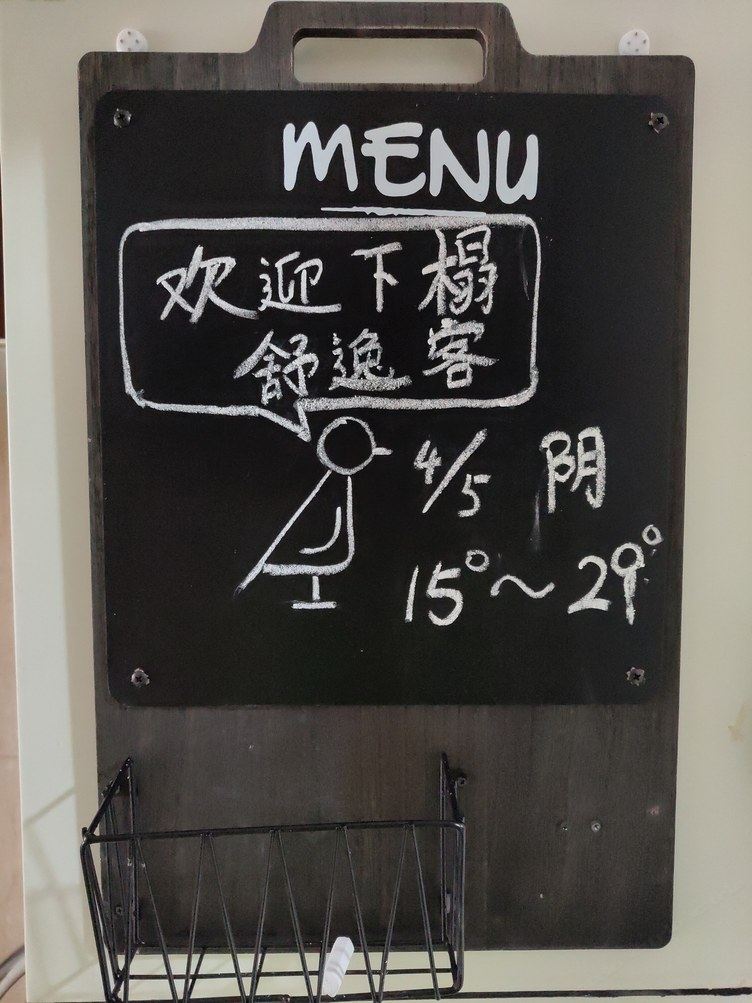 MENU
欢迎下榻
舒逸客
4/5 阴
15°~29°